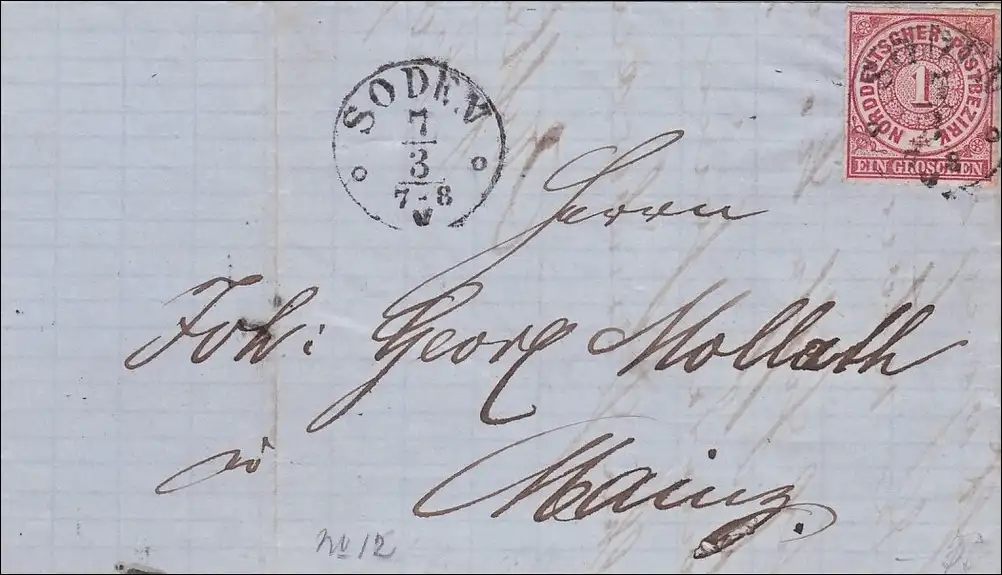 SODEN
7
3
7-8
NORDDEUTSCHER POSTBEZIRK
1
EIN GROSCHEN
Herrn
Joh: Georg Mollath
Mainz.
No 12